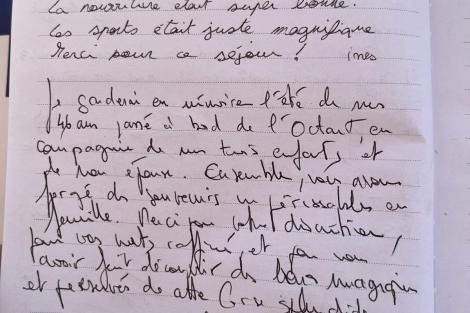 La nourriture était super bonne.
Les sports était juste magnifique
Merci pour ce séjour ! ines
Je garderai en mémoire l'été de mes
46 ans passé à bord de l'Octant en
compagnie de mes trois enfants et
de mon épouse. Ensemble, nous avons
forgé des souvenirs impérissables en
famille. Merci pour votre discrétion,
pour vos mets raffinés, et pour nous
avoir fait découvrir des lieux magiques
et préservés de cette Corse splendide